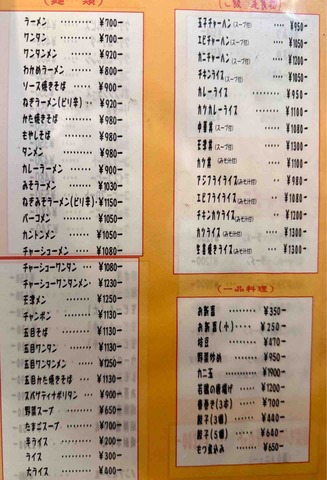 (麺 類)
ラーメン ････ ¥700-
ワンタン ････ ¥700-
ワンタンメン ････ ¥920-
わかめラーメン ････ ¥980-
ソース焼きそば ････ ¥900-
ねぎラーメン(ピリ辛) ･･ ¥920-
かた焼きそば ････ ¥980-
もやしそば ････ ¥980-
タンメン ････ ¥980-
カレーラーメン ････ ¥900-
みそラーメン ････ ¥1030-
ねぎみそラーメン(ピリ辛) ･･ ¥1150-
バーコメン ････ ¥1050-
カントンメン ････ ¥1050-
チャーショーメン ････ ¥1080-
チャーショーワンタン ･･･ ¥1080-
チャーショーワンタンメン ･･ ¥1230-
天津メン ････ ¥1250-
チャンポン ････ ¥1130-
五目そば ････ ¥1130-
五目ワンタン ････ ¥1130-
五目ワンタンメン ････ ¥1250-
五目かた焼きそば ････ ¥1130-
スパゲティナポリタン ････ ¥900-
野菜スープ ････ ¥650-
たまごスープ ････ ¥700-
半ライス ････ ¥200-
ライス ････ ¥300-
大ライス ････ ¥400-
玉子チャーハン(スープ付) ････ ¥950-
エビチャーハン(スープ付) ･･･ ¥1050-
カニチャーハン(スープ付) ･･･ ¥1200-
チキンライス(スープ付) ････ ¥1050-
カレーライス ････ ¥900-
カツカレーライス ････ ¥1100-
中華丼(スープ付) ････ ¥1080-
天津丼(スープ付) ････ ¥1300-
カツ丼(みそ汁付) ････ ¥1000-
アジフライライス(みそ汁付) ･･ ¥980-
エビフライライス(みそ汁付) ･･ ¥1300-
チキンカツライス(みそ汁付) ･･ ¥1200-
カツライス(みそ汁付) ････ ¥1300-
生姜焼きライス(みそ汁付) ･･･ ¥1300-
(一品料理)
お新香 ････ ¥350-
お新香(小) ････ ¥250-
枝豆 ････ ¥470-
野菜炒め ････ ¥950-
カニ玉 ････ ¥1900-
若鶏の唐揚げ ････ ¥1200-
春巻き(3本) ････ ¥700-
餃子(3個) ････ ¥440-
餃子(5個) ････ ¥640-
もつ煮込み ････ ¥650-